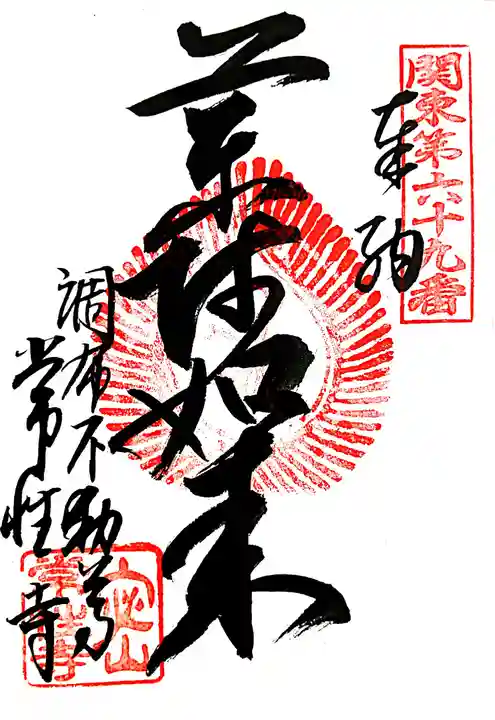 関東第六十九番
奉拝
薬師如来
調布不動尊
常性寺